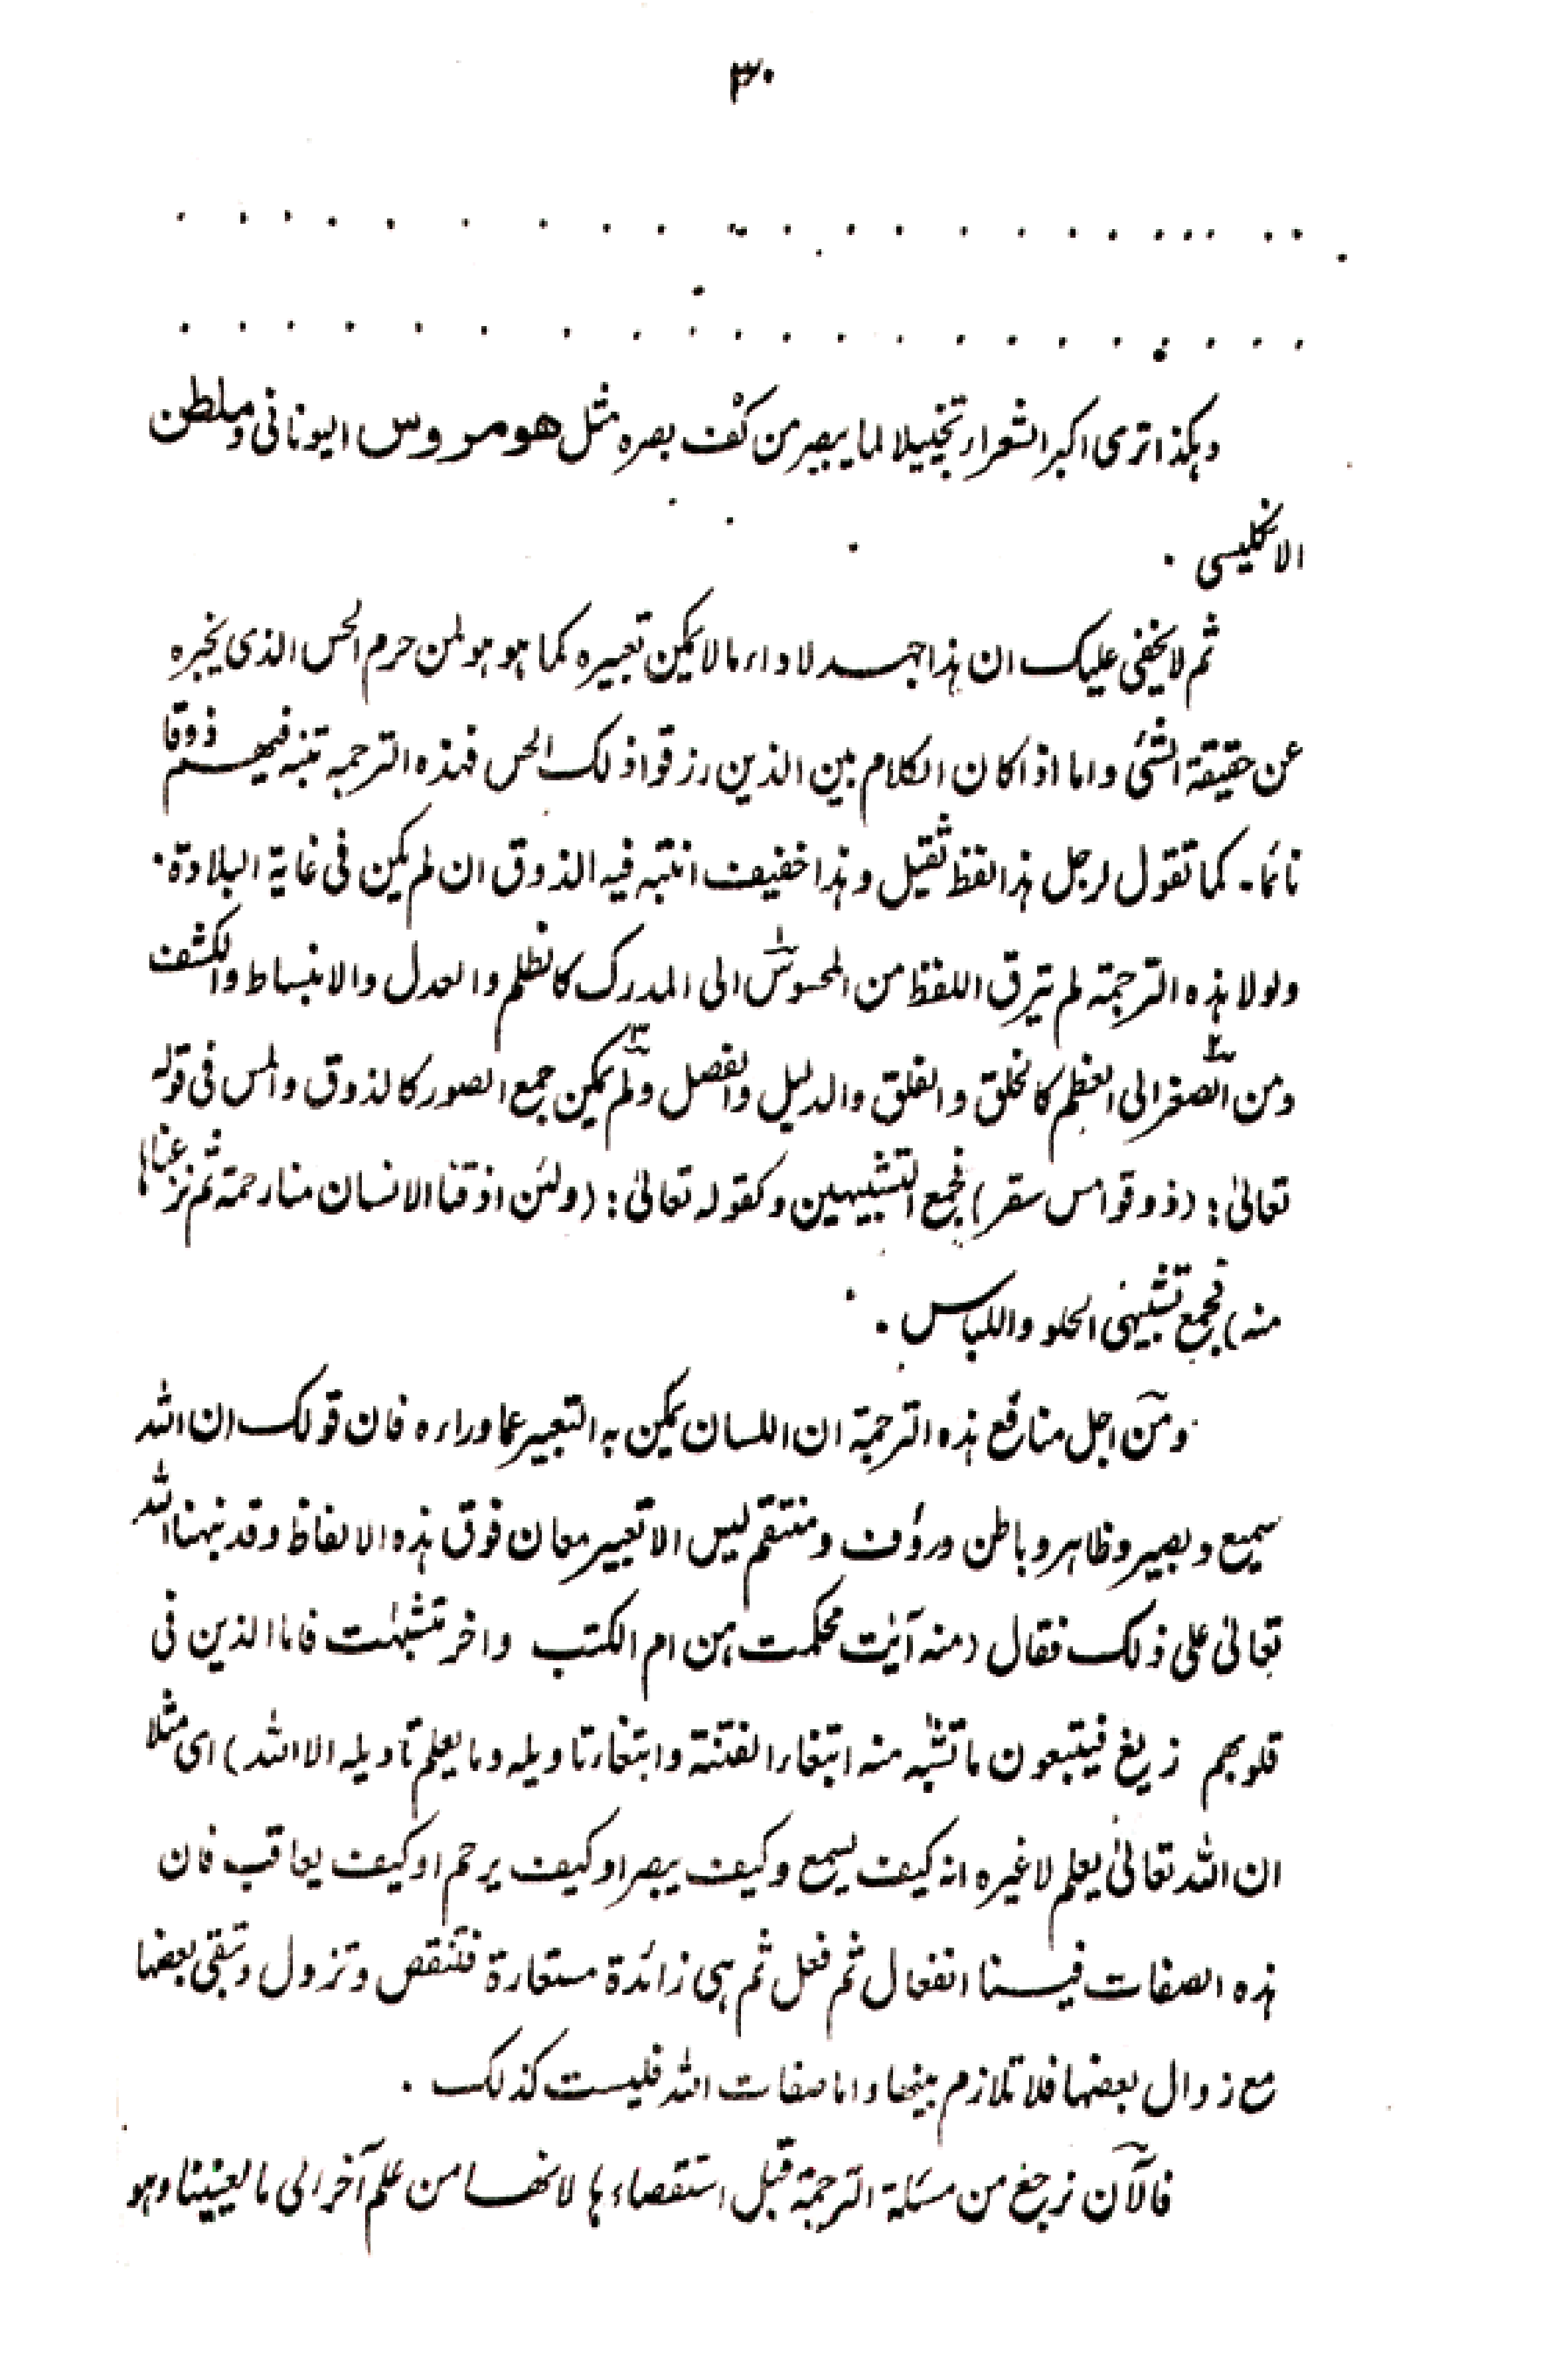 ٣٠
. . . . . . . . . . . . . . . . . . . . . . . .
. . . . . . . . . . . . . . . . . . . . . . . .
وهكذا ترى اكبر الشعراء تخييلا لما يبصر من كف بصره مثل هومروس اليونانى وملطن
الانكليسى .
ثم لا يخفى عليك ان هذا جهد لاداء ما لا يمكن تعبيره كما هو هو لمن حرم الحس الذى يخبره
عن حقيقة الشئ واما اذا كان الكلام بين الذين رزقوا ذلك الحس فهذه الترجمه تنبه فيهم ذوقا
نائما۔ كما تقول لرجل هذا لفظ ثقيل وهذا خفيف انتبه فيه الذوق ان لم يكن فى غاية البلادة.
ولولا هذه الترجمة لم يترق اللفظ من المحسوس١ الى المدرك كالظلم والعدل والانبساط والكشف
ومن٢ الصغر الى العظم كالخلق والفلق والدليل والفصل ولم٣ يمكن جمع الصور كالذوق والمس فى قوله
تعالىٰ: (ذوقوا مس سقر) فجمع التشبيهين وكقوله تعالىٰ: (ولئن اذقنا الانسان منا رحمة ثم نزعناها
منه) فجمع تشبيهى الحلو واللباس .
ومن اجل منافع هذه الترجمة ان اللسان يمكن به التعبير عما وراءه فان قولك ان الله
سميع وبصير وظاهر وباطن ورؤف ومنتقم ليس الا تعبير معان فوق هذه الالفاظ وقد نبهنا الله
تعالىٰ على ذلك فقال (منه آيٰت محكمت هن ام الكتب واخر متشبهٰت فاما الذين فى
قلوبهم زيغ فيتبعون ما تشٰبه منه ابتغاء الفتنة وابتغاء تاويله وما يعلم تاويله الا الله) اى مثلا
ان الله تعالىٰ يعلم لا غيره انه كيف يسمع وكيف يبصر او كيف يرحم او كيف يعاقب فان
هذه الصفات فينا انفعال ثم فعل ثم هى زائدة مستعارة فتنقص وتزول وتبقى بعضها
مع زوال بعضها فلا تلازم بينها واما صفات الله فليست كذلك .
فالآن نرجع من مسئلة الترجمة قبل استقصاءها لانها من علم آخر الى ما يعنينا وهو